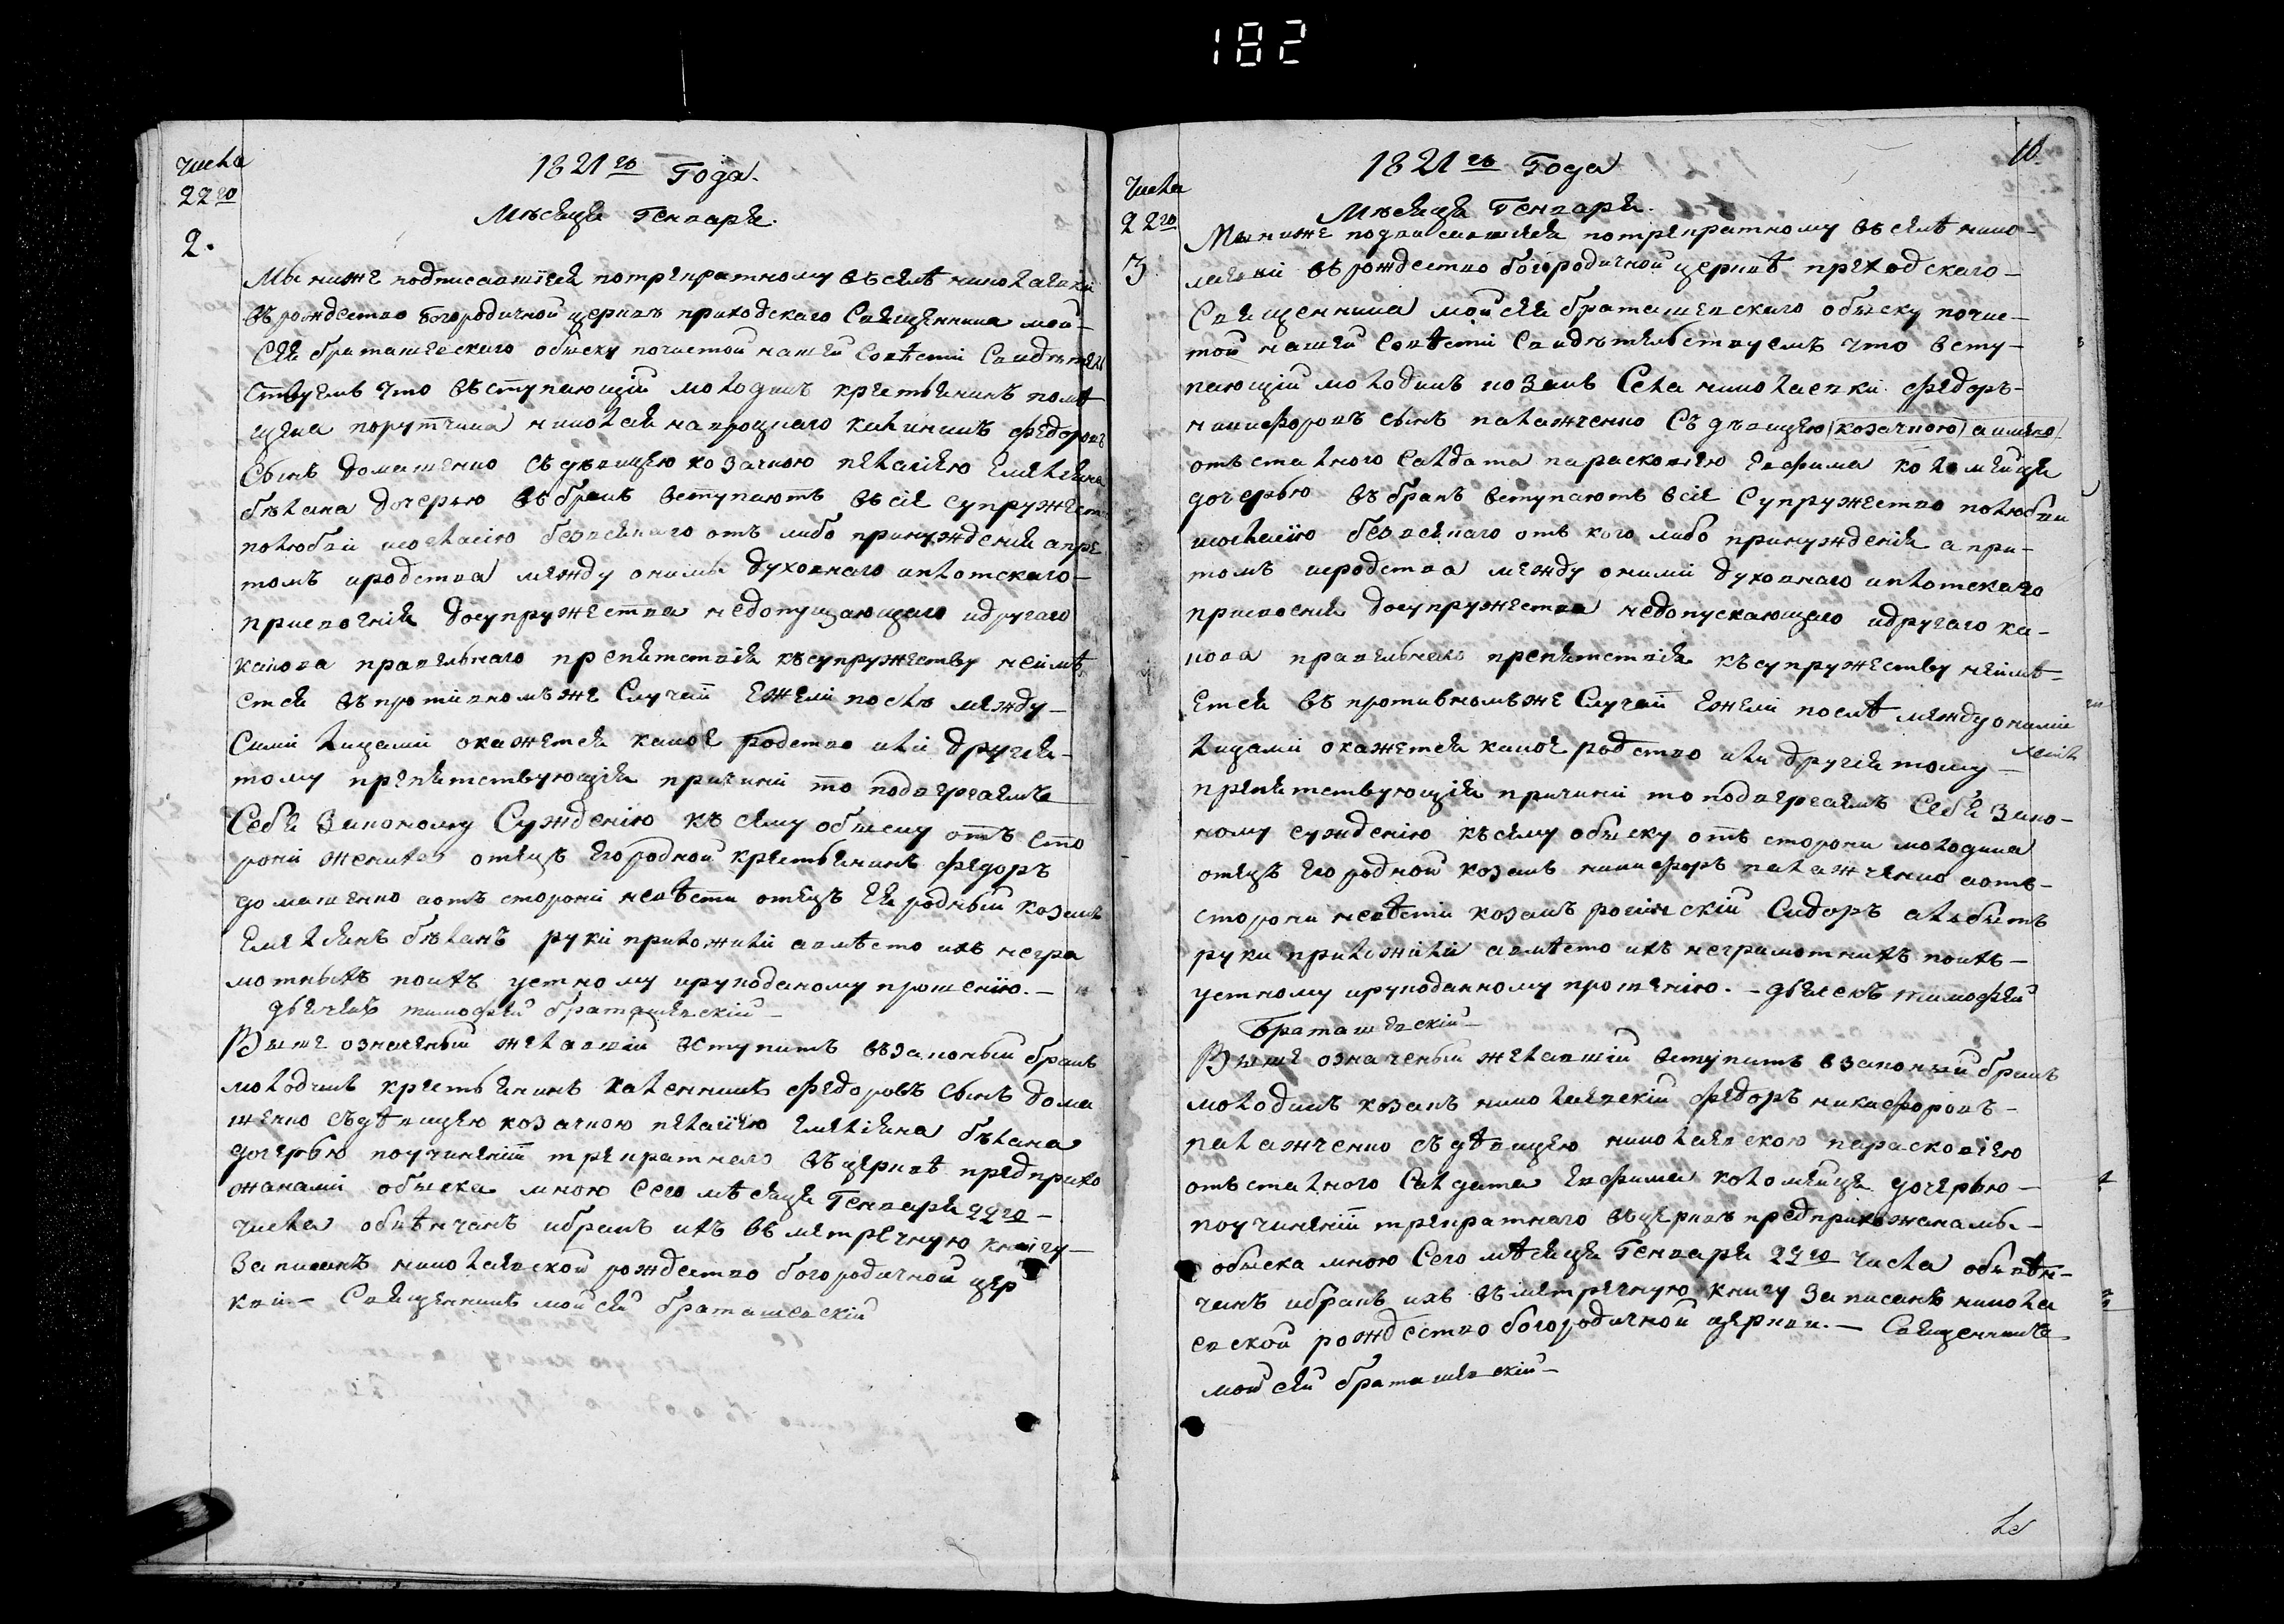 182
числа
22го
2.
1821го Года.
Мѣсяця Генваря.
Мы ниже подписавшіеся потрекратному въ селѣ николаевки
въ рождество Богородичной церквѣ приходскаго Священника мои-
сея браташевскаго обыску почистой нашей Совѣсти Свидѣтель
ствуемъ что въступающій молодикъ крестьянинъ помѣ
щика порутчика николая навроцкаго калиникъ федоровъ
Сынъ домашенко съ дѣвицею козачкою пелагіею Емеліяна
бѣлана дочерью въ бракъ вступаютъ въ сіе супружест
полюбви исогласію безвсякаго отъ либо принужденія апре
томъ иродства между онимы духовнаго иплотскаго-
присвоенія досупружества недопущающаго идругаго
какова правельнаго препятствія къ супружеству неимѣ
ется въ противномъ же Случаи Ежели послѣ между-
Сими лицами окажется какое родство или другія-
тому препятствующія причини то подвергаемъ
Себя Законому Сужденію къ сему обыску отъ сто
рони жениха отецъ Его родной крестьянинъ федоръ
домашенко аотъ сторони невѣсти отецъ Ея родный козакъ
Емеліянъ бѣланъ руки приложили авмѣсто ихъ негра
мотныхъ поихъ устному ируководаному прошенію.-
дьячекъ тимофей браташевскій-
Выше означеный желавшій вступить въ законый бракъ
молодикъ крестьянинъ каленникъ федоровъ Сынъ дома
шенко съ дѣвицею козачкою пелагіею Емеліяна бѣлана
дочерью поучиненіи трекратнаго въ церквѣ предприхо
жанами обыска мною Сего мѣсяця Генваря 22го-
числа обвѣнчанъ ибракъ ихъ въ метречную книгу-
Записанъ николаевской рождество богородичной цер
кви.- Священникъ моисей браташевскій
10.
числа
22го
3
1821го Года
Мѣсяця Генваря.
Мы ниже подписавшіеся потрекратному въ селѣ нико-
лаевки въ рождество богородичной церквѣ преходскаго-
Священника моисея браташевскаго обыску почис-
той нашей Совѣсти Свидѣтельствуемъ что всту-
пающій молодикъ козакъ Села николаевки федоръ-
никифоровъ сынъ палажченко съ дѣвицею (козачкою) аимено
отъсталного Салдата парасковіею Евфима коломейця
дочерью въ бракъ вступаютъ всіе Супружество полюбви
исогласію безвсякаго отъ кого либо принужденія апри-
томъ иродства между оними духовнаго иплотскаго
присвоенія досупружества недопускающаго идругаго ка-
кова правельнаго препятствія къ супружеству неимѣ-
ется въ противномъ же Случаи Ежели послѣ между оними
лицами окажется какое родство или другія тому-
препятствующія причини то подвергаемъ Себя Зако-
ному сужденію къ сему обыску отъ сторони молодика
отецъ Его родной козакъ никифоръ палажченко аотъ-
сторони невѣсти козакъ Сидоръ
руки приложили авмѣсто ихъ неграмотнихъ поихъ-
устному ируководанному прошенію.- дьячекъ тимофей
Браташевскій-
Выше означеный желавшій вступить взаконый бракъ
молодикъ козакъ николаевскій федоръ никифоровъ-
палажченко съ дѣвицею николаевскою парасковіею
отъсталного Салдата Евфима коломейця дочерью-
поучиненіи трекратнаго въ церквѣ предприхожанамы-
обыска мною Сего мѣсяця Генваря 22го числа обвѣн-
чанъ ибракъ ихъ въ метречную книгу Записанъ никола
евской рождество богородичной церкви.- Священникъ-
моисей браташевскій-